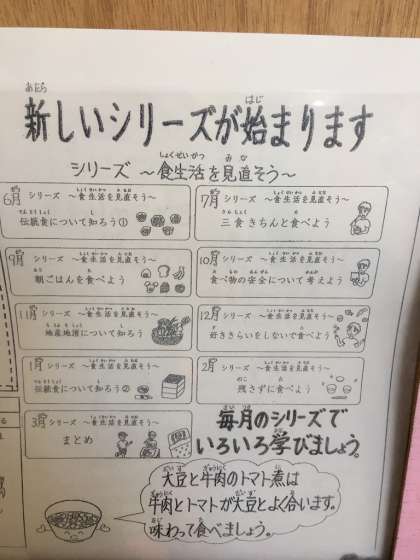 新しいシリーズが始まります
シリーズ ～食生活を見直そう～
6月 シリーズ ～食生活を見直そう～
伝統食について知ろう①
7月 シリーズ ～食生活を見直そう～
三食きちんと食べよう
9月 シリーズ ～食生活を見直そう～
朝ごはんを食べよう
10月 シリーズ ～食生活を見直そう～
食べ物の安全について考えよう
11月 シリーズ ～食生活を見直そう～
地産地消について知ろう
12月 シリーズ ～食生活を見直そう～
好ききらいをしないで食べよう
1月 シリーズ ～食生活を見直そう～
伝統食について知ろう②
2月 シリーズ ～食生活を見直そう～
残さずに食べよう
3月 シリーズ ～食生活を見直そう～
まとめ
毎月のシリーズで
いろいろ学びましょう。
大豆と牛肉のトマト煮は
牛肉とトマトが大豆とよく合います。
味わって食べましょう。